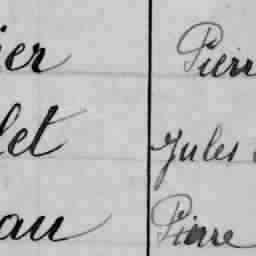 ier Pierr
let Jules
au Pierre